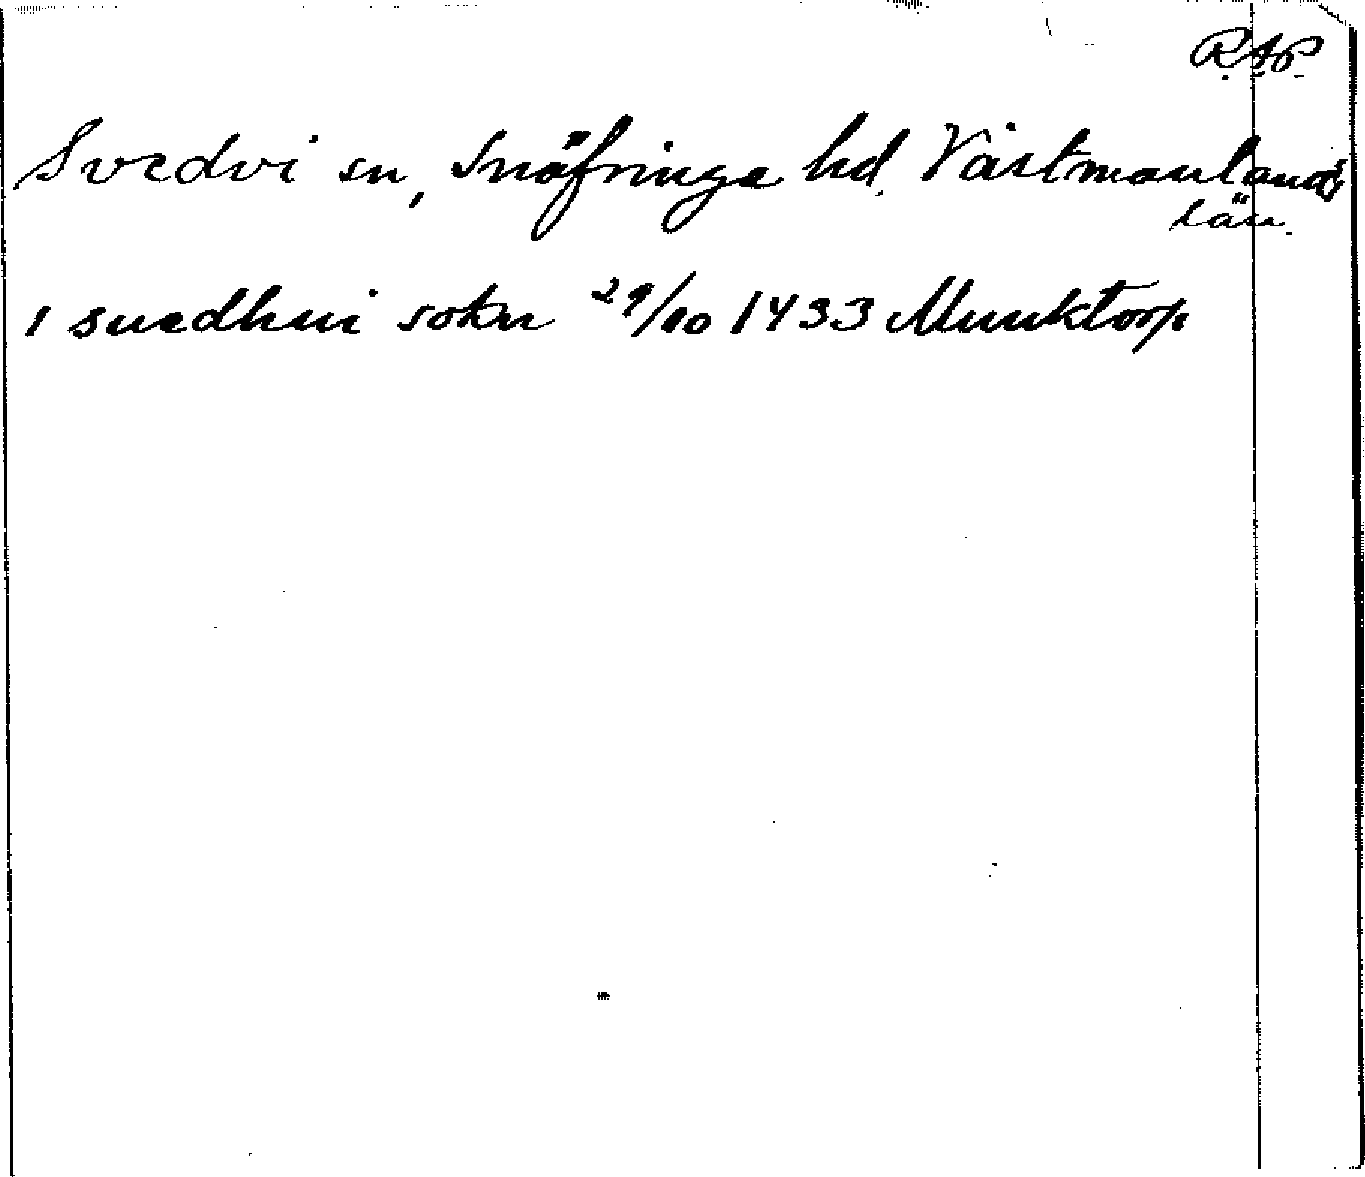 RAP
Svedvi sn, Snäfringe hd. Västmanlands
län.
i suedhui sokn 29/10 1433 Munktorp